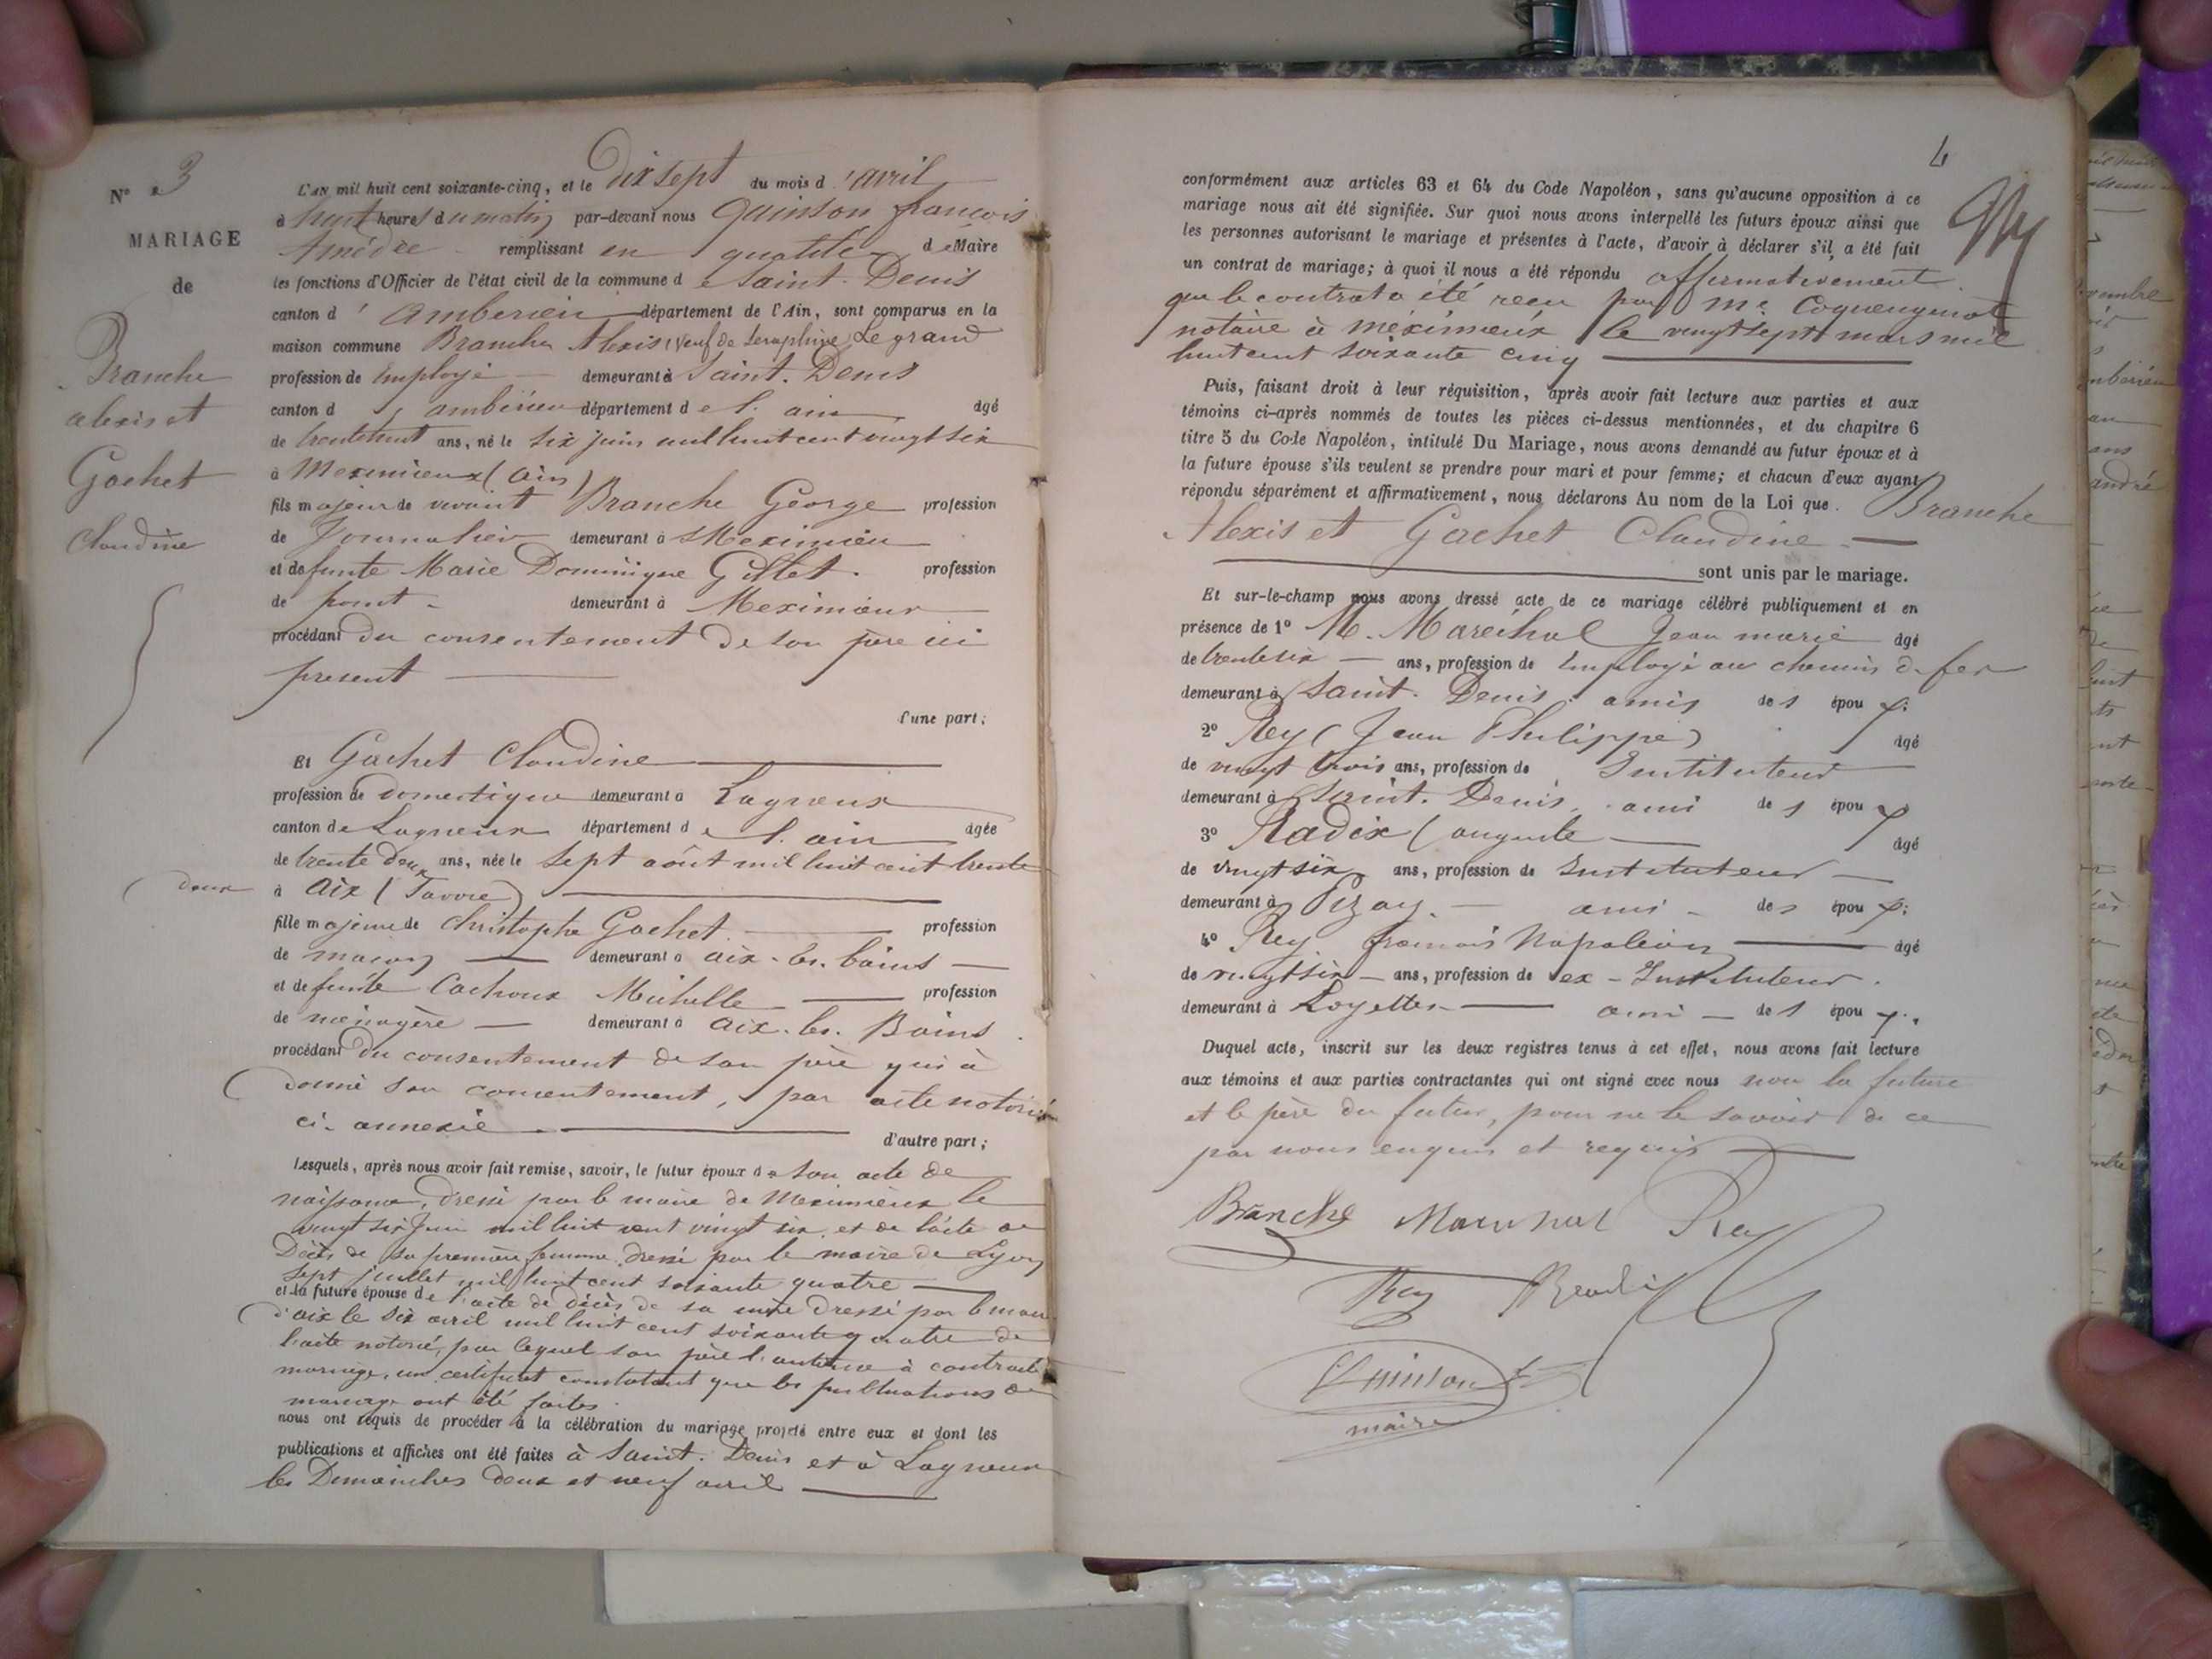 N° 3
MARIAGE
de
Branche
alexis et
Gachet
Claudine
L'AN mil huit cent soixante-cinq, et le Dix sept du mois d'avril
à huit heures du matin par-devant nous Quinson françois
Amédée remplissant en qualité de Maire
les fonctions d'Officier de l'état civil de la commune de Saint. Denis
canton d'Amberieu département de l'Ain, sont comparus en la
maison commune Branche Alexis, veuf de Seraphine Legrand
profession de Employé demeurant à Saint. Denis
canton d'ambérieu département de l'ain âgé
de trentehuit ans, né le six juin mil huit cent vingt six
à Meximieux (ain)
fils majeur de vivant Branche George profession
de Journalier demeurant à Meximieu
et defunte Marie Dominique Gillet. profession
de point demeurant à Meximieux
procédant du consentement de son père ici
present
d'une part;
Et Gachet Claudine
profession de domestique demeurant à Lagneux
canton de Lagneux département de l'ain âgée
de trente deux ans, née le sept août mil huit cent trente
deux à Aix (Savoie)
fille majeure de Christophe Gachet profession
de maçon demeurant à aix. les. bains
et defunte Cachoux Michelle profession
de ménagère demeurant à aix. les. Bains
procédant du consentement de son père qui à
donné son consentement, par acte notarié
ci-annexié
d'autre part;
Lesquels, après nous avoir fait remise, savoir, le futur époux de son acte de
naissance, dressé par le maire de Meximieux le
vingt six Juin mil huit cent vingt six, et de l'acte de
Décès de sa première femme dressé par le maire de Lyon
sept juillet mil huit cent soixante quatre
et la future épouse de l'acte de décès de sa mère dressé par le maire
d'aix le dix avril mil huit cent soixante quatre de
l'acte notarié, par lequel son père l'autorise à contracter
mariage, un certificat constatant que les publications de
mariage ont été faites.
nous ont requis de procéder à la célébration du mariage projeté entre eux et dont les
publications et affiches ont été faites à Saint. Denis et à Lagneux
les Dimanches deux et neuf avril
4
conformément aux articles 63 et 64 du Code Napoléon, sans qu'aucune opposition à ce
mariage nous ait été signifiée. Sur quoi nous avons interpellé les futurs époux ainsi que
les personnes autorisant le mariage et présentes à l'acte, d'avoir à déclarer s'il a été fait
un contrat de mariage; à quoi il nous a été répondu affirmativement
que le contrat a été recu par Me
notaire à méximieux le vingt sept mars mil
huit cent soixante cinq
Puis, faisant droit à leur réquisition, après avoir fait lecture aux parties et aux
témoins ci-après nommés de toutes les pièces ci-dessus mentionnées, et du chapitre 6
titre 5 du Code Napoléon, intitulé Du Mariage, nous avons demandé au futur époux et à
la future épouse s'ils veulent se prendre pour mari et pour femme; et chacun d'eux ayant
répondu séparément et affirmativement, nous déclarons Au nom de la Loi que. Branche
Alexis et Gachet Claudine
sont unis par le mariage.
Et sur-le-champ nous avons dressé acte de ce mariage célébré publiquement et en
présence de 1° M. Maréchal Jean marie âgé
de trente six ans, profession de Employé au chemin de fer
demeurant à Saint. Denis amis des époux.
2° Rey (Jean Philippe) âgé
de vingt trois ans, profession de Instituteur
demeurant à Saint. Denis, ami des époux
3° Radix (auguste âgé
de vingt six ans, profession de Instituteur
demeurant à Pizay. ami des époux.
4° Rey françois Napoléon âgé
de vingt six ans, profession de ex-Instituteur.
demeurant à Loyettes ami des époux.
Duquel acte, inscrit sur les deux registres tenus à cet effet, nous avons fait lecture
aux témoins et aux parties contractantes qui ont signé avec nous non la future
et le père du futur, pour ne le savoir de ce
par nous enquis et requis
Branche Marechal Rey
Rey Radix
Quinson
maire